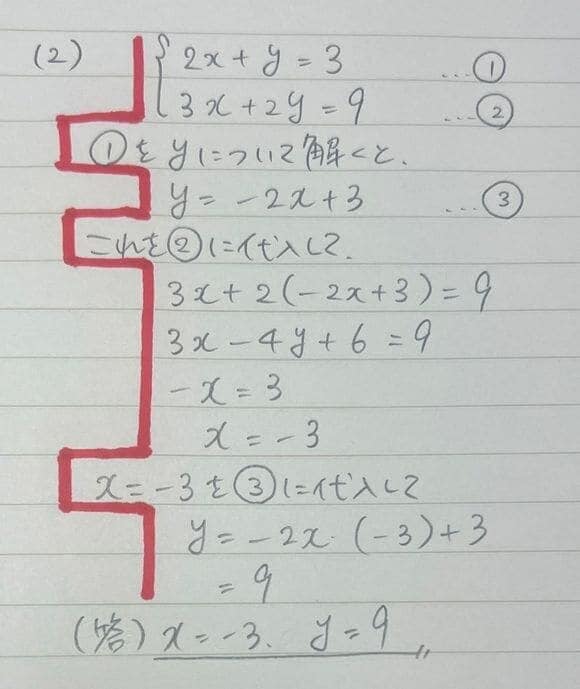 (2) { 2x + y = 3 …①
3x + 2y = 9 …②
①をyについて解くと、
y = -2x + 3 …③
これを②に代入して、
3x + 2(-2x+3) = 9
3x - 4y + 6 = 9
-x = 3
x = -3
x = -3を③に代入して
y = -2x (-3) + 3
= 9
(答) x = -3、y = 9